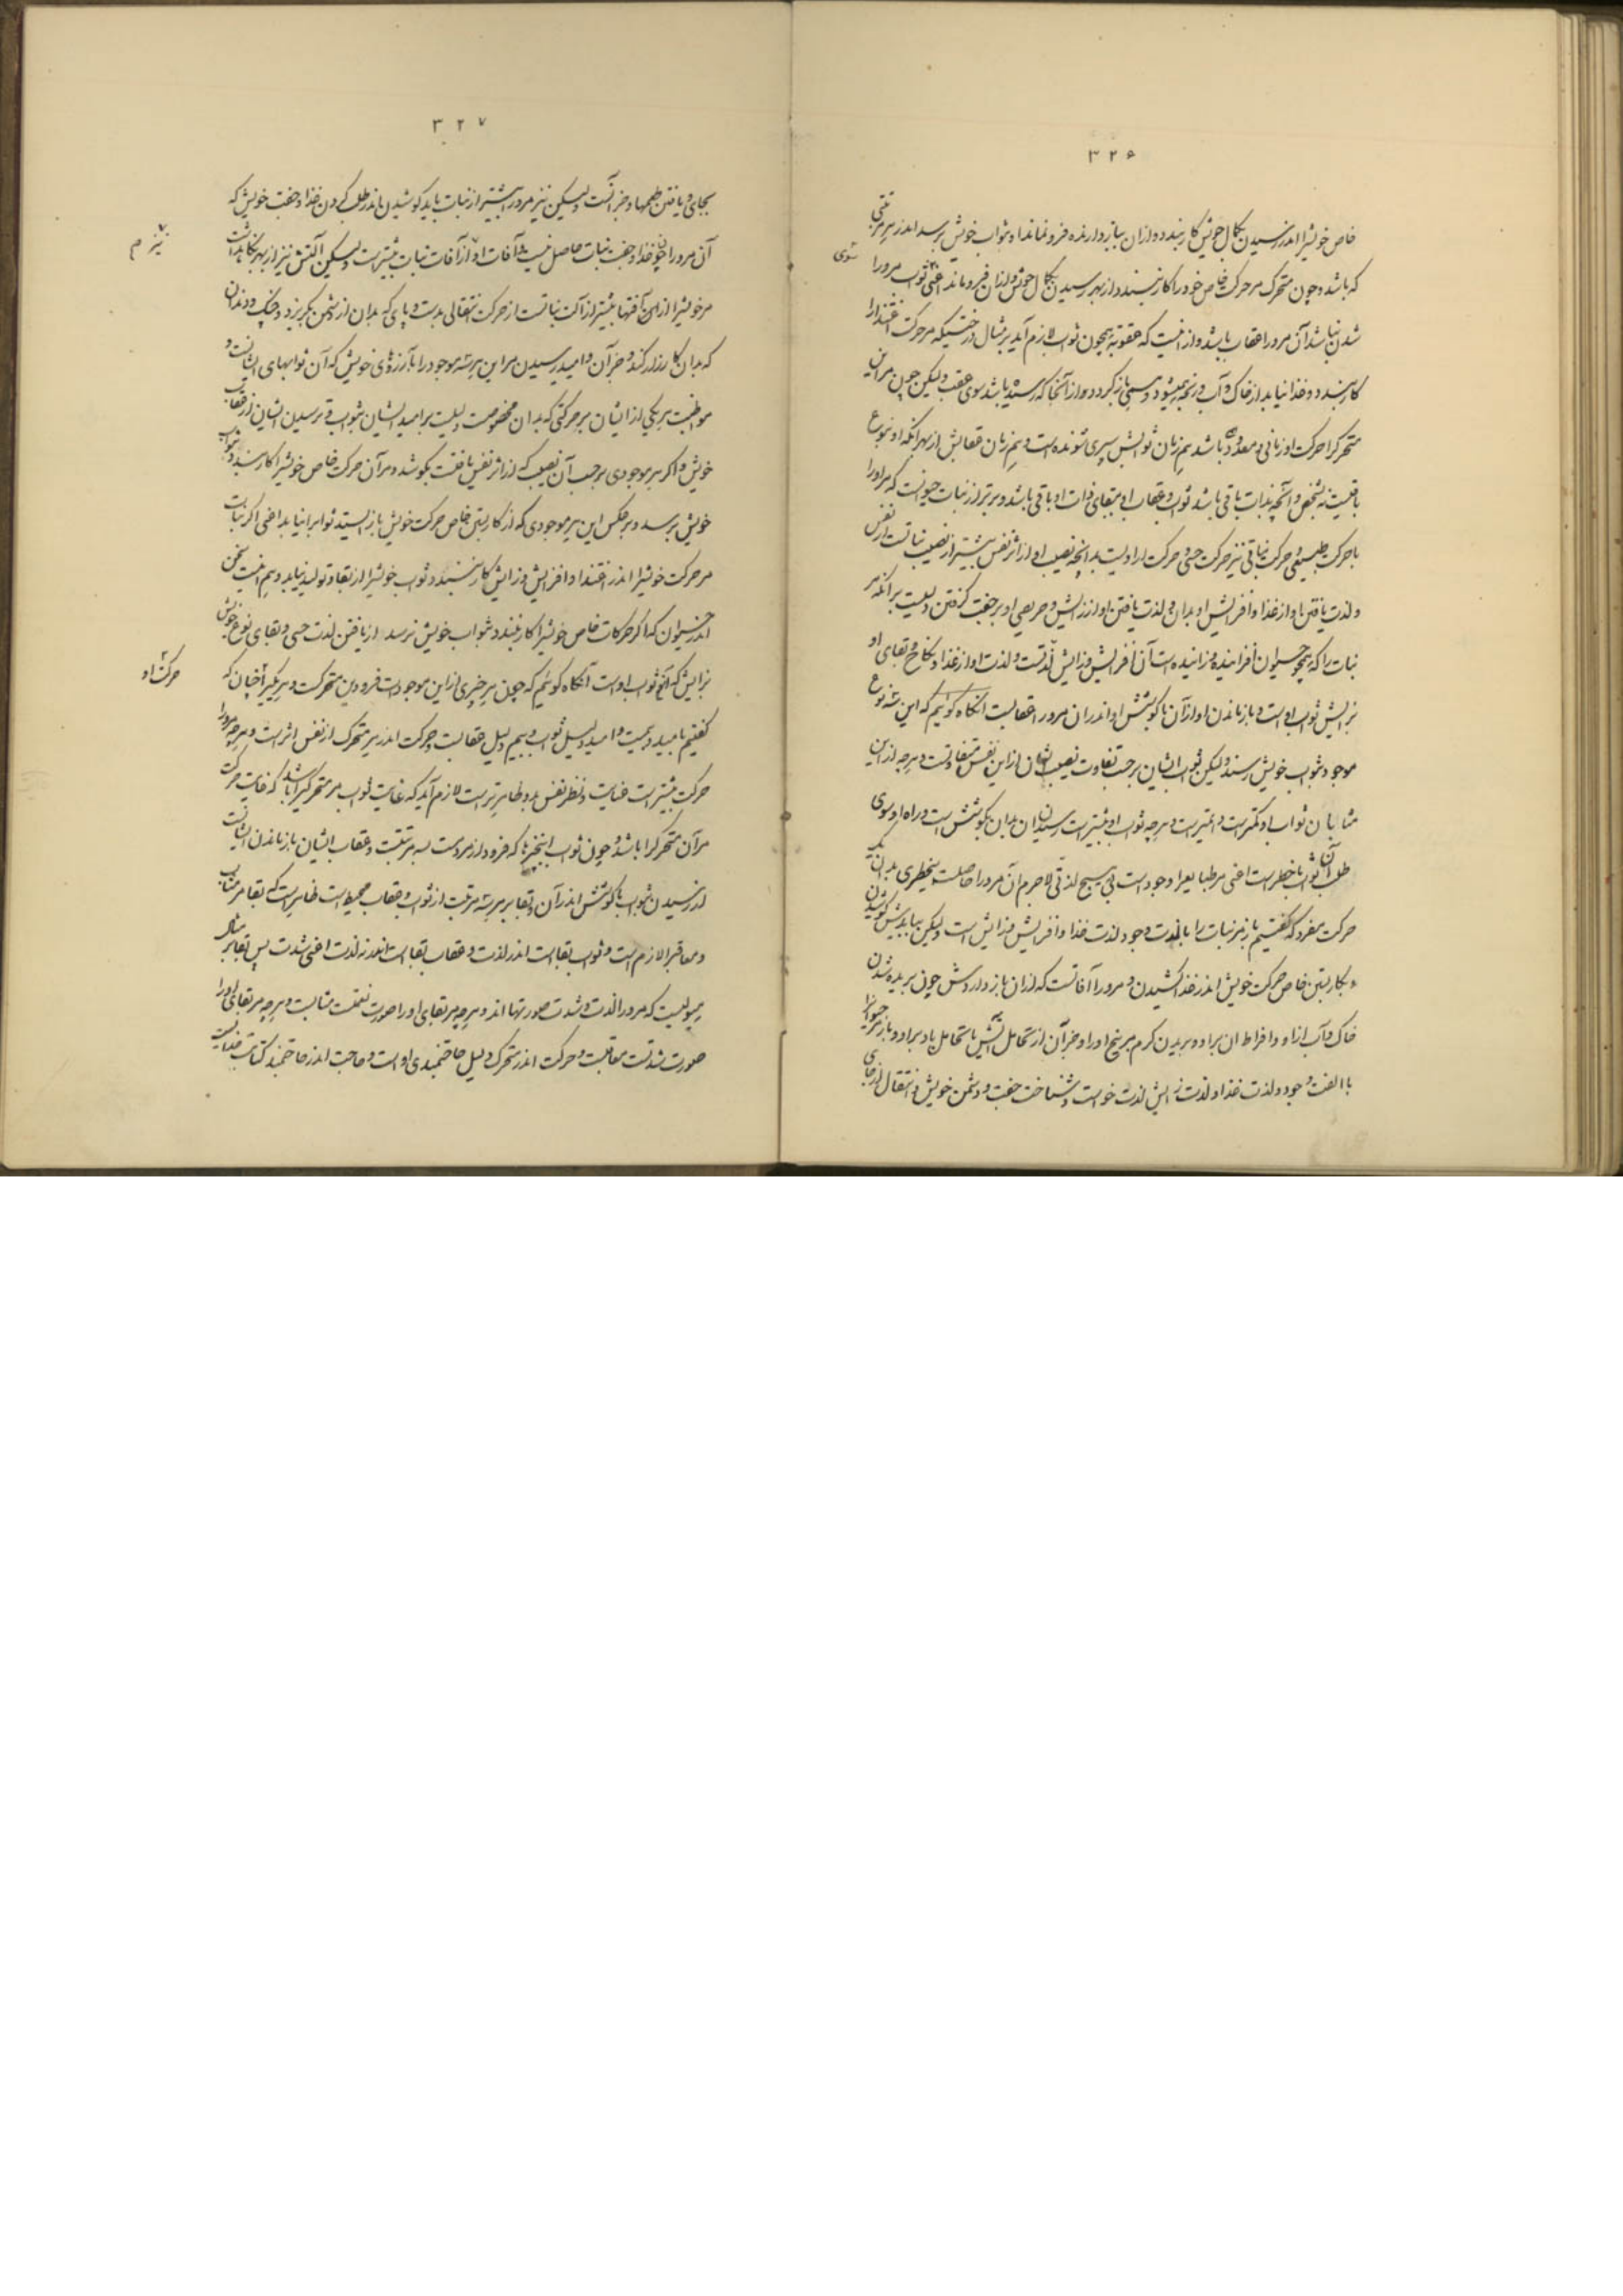 ۳۲۶
خاص خویش را اندر رسیدن بکمال خویش کار بندد و از آن بباز دارنده فرو نماند او بثواب خویش برسد اندر هر مرتبتی
که باشد و چون متحرک مر حرکت خاص خود را کار نبندد از بهر رسیدن بکمال خویش و از آن فرو ماند اعنی ثواب مر او را
سوی
شدن نباشد آن مر او را عقاب باشد و از اینست که عقوبت همچون ثواب لازم آید بر مثال درختیکه مر حرکت اغتذا را
کار نبندد و غذا نیابد از خاک و آب و رنجه میشود و هستی باز گردد و از آنجا که رسیده باشد سوی عقب ولیکن چون مر این
متحرک را حرکت او زمانی و معدود باشد هم زمان ثوابش سپری شونده است و هم زمان عقابش از بهر آنکه او بنوع
باقیست نه بشخص و آنچه بذات باقی باشد ثواب و عقاب او ببقای ذات او باقی باشد و برتر از نبات حیوانست که مر او را
با حرکت طبیعی و حرکت نباتی نیز حرکت حسی و حرکت ارادیست بدانچه نصیب او از اثر نفس بیشتر از نصیب نباتست از نفس
و لذت یافتن او از غذا و افزایش او بدان و لذت یافتن او از زایش و حریصی او بر جفت گرفتن دلیلست بر آنکه مر
نبات را که همچو حیوان افزاینده و زاینده است آن افزایش و زایش لذتست و لذت او از غذا و نکاح و بقای او
بزایش ثواب اوست و باز ماندن او از آن با کوشش او اندر آن مر او را عقابست آنگاه گوئیم که این سه نوع
موجود بثواب خویش رسند ولیکن ثواب ایشان بر حسب تفاوت نصیب ایشان از این نفس متفاوتست و هر چه از این
مثابان ثواب او کمتر است و هر چه ثواب او بیشتر است رسیدن بدان بکوشش است و راه او سوی
طلب آن ثواب با خطر است اعنی مر طبایع را وجود است بی هیچ لذتی لاجرم آن مر او را حاصلست بیخطری بدان یک
حرکت مفرد که گفتیم باز مر نبات را با لذت وجود لذت غذا و افزایش و زایش است ولیکن ببایدش کوشیدن
و بکار بستن خاص حرکت خویش اندر غذا کشیدن و مر او را آفاتست که از آن باز داردش چون بریده شدن
خاک و آب ازو و افراط آن برو و بریدن کرم مر بیخ او را و جز آن از تحامل آتش یا تحامل باد بر او و باز مر حیوان را
با الفت وجود و لذت غذا و لذت زایش لذت خواست و شناخت جفت و دشمن خویش و انتقال از جای
۳۲۷
بجای و یافتن طعمها و جز آنست ولیکن نیز مر او را بیشتر از نبات باید کوشیدن اندر طلب کردن غذا و جفت خویش که
آن مر او را چون غذا و جفت نبات حاصل نیست و آفات او از آفات نبات بیشتر است ولیکن آلتش نیز از بهر نگاهداشت
نیز م
مر خویش را از این آفتها بیشتر از آلت نباتست از حرکت انتقالی بدست و پای که بدان از دشمن بگریزد و چنگ و دندان
که بدان کارزار کند و جز آن و امید رسیدن مر این هر سه موجود را بآرزوی خویش که آن ثوابهای ایشانست و
مواظبت هر یکی از ایشان بر حرکتی که بدان مخصوصست دلیلست بر امید ایشان بثواب و ترسیدن ایشان از عقاب
خویش و اگر هر موجودی بر حسب آن نصیب که از اثر نفس یافتست بکوشد و مر آن حرکت خاص خویش را کار بندد بثواب
خویش برسد و بر عکس این هر موجودی که از کار بستن خاص حرکت خویش باز ایستد ثواب را نیابد اعنی اگر نبات
مر حرکت خویش را اندر اغتذا و افزایش و زایش کار نبندد ثواب خویش را از بقا و تولید نیابد و هم اینست سخن
اندر حیوان که اگر حرکات خاص خویش را کار نبندد بثواب خویش نرسد از یافتن لذت حسی و بقای نوع خویش
بزایش که آنهم ثواب اوست آنگاه گوئیم که چون هر چیزی از این موجودات فرودین متحرکست و هر یکی را چنان که
حرکت او
گفتیم بامید و بیمست و امید دلیل ثواب و بیم دلیل عقابست و حرکت اندر هر متحرک از نفس اثر است و هر چه مر او را
حرکت بیشتر است عنایت و نظر نفس بدو ظاهرتر است لازم آید که غایت ثواب مر متحرکی را باشد که غایت حرکت
مر آن متحرک را باشد و چون ثواب این چیزها که فرود از مردمست سه مرتبتست و عقاب ایشان باز ماندن ایشانست
از رسیدن بثواب با کوشش اندر آن و بقا بر هر سه مرتبت از ثواب و عقاب محیط است ظاهر است که بقا مر مثاب
و معاقب را لازم است و ثواب بقا است اندر لذت و عقاب بقا است اندر نه لذت اعنی شدت پس بقا بر مثال
هیولیست که مر او را لذت و شدت صورتها اند و هر چه مر بقای او را صورت نعمتست مثابست و هر چه مر بقای او را
صورت شدتست معاقبست و حرکت اندر متحرک دلیل حاجتمندی اوست و حاجت اندر حاجتمند